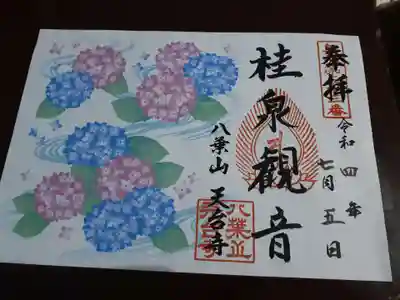 奉拝
令和四年
七月五日
桂泉観音
八葉山 天台寺
八葉山
天台寺